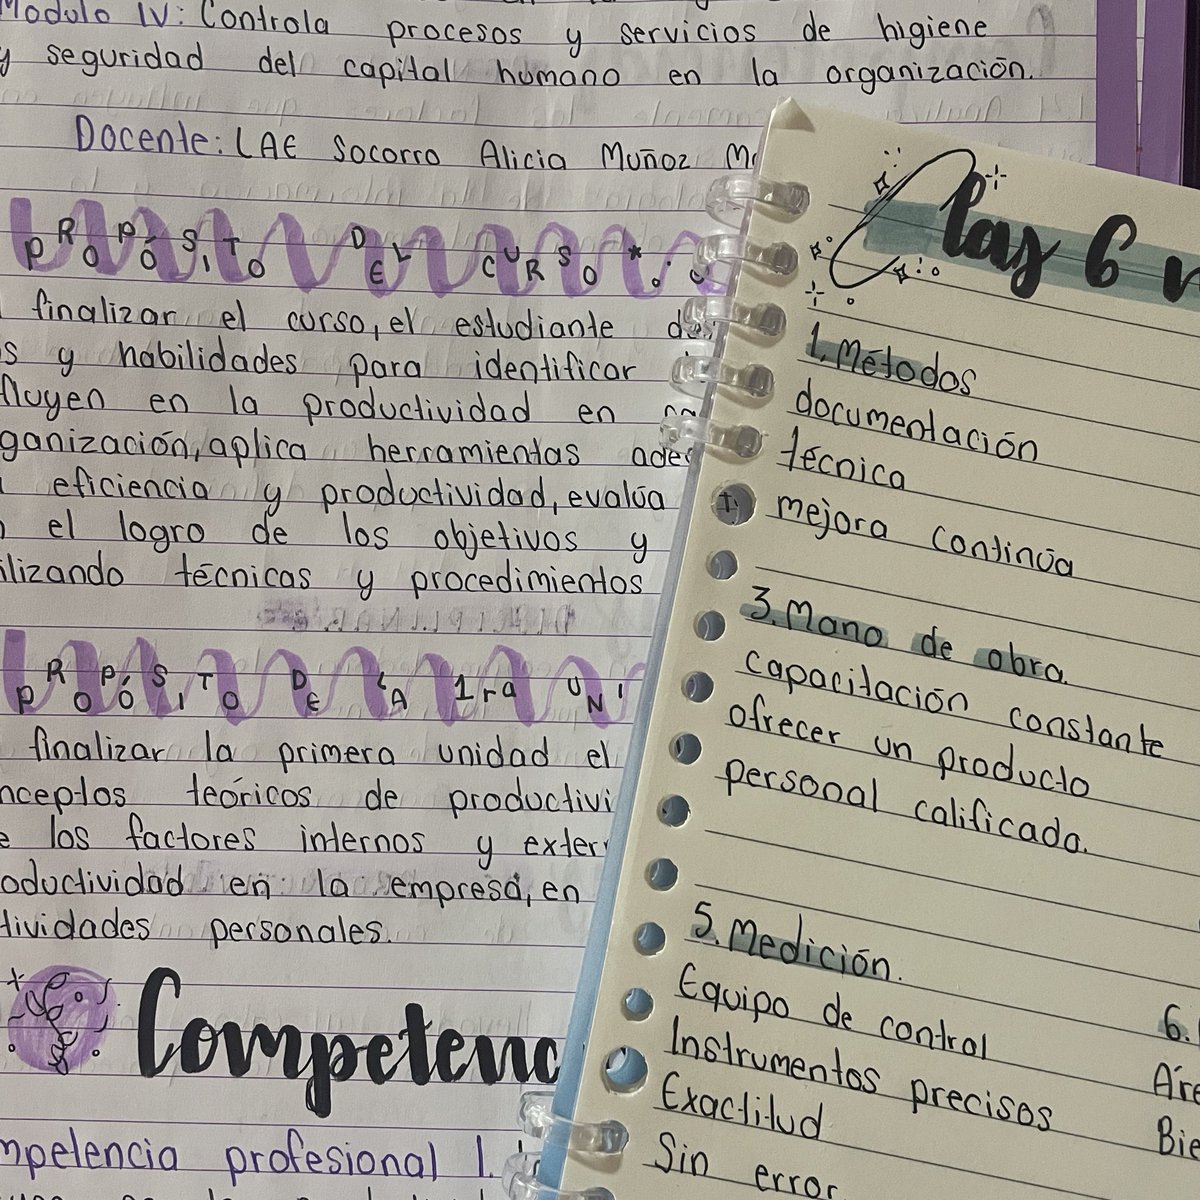 Modulo IV: Controla procesos y servicios de higiene
y seguridad del capital humano en la organización.
Docente: LAE Socorro Alicia Muñoz
PROPÓSITO DEL CURSO
finalizar el curso, el estudiante
y habilidades para identificar
fluyen en la productividad en
ganización, aplica herramientas
eficiencia y productividad, evalúa
el logro de los objetivos y
ilizando técnicas y procedimientos
PROPÓSITO DE LA 1ra UNI
finalizar la primera unidad el
nceptos teóricos de productivi
e los factores internos y exter
oductividad en la empresa, en
tividades personales.
Competenc
mpetencia profesional 1.
las 6
1. Métodos
documentación
técnica
mejora continúa
3. Mano de obra.
capacitación constante
ofrecer un producto
personal calificado.
5. Medición.
Equipo de control
Instrumentos precisos
Exactitud
Sin error
6.
Áre
Bie